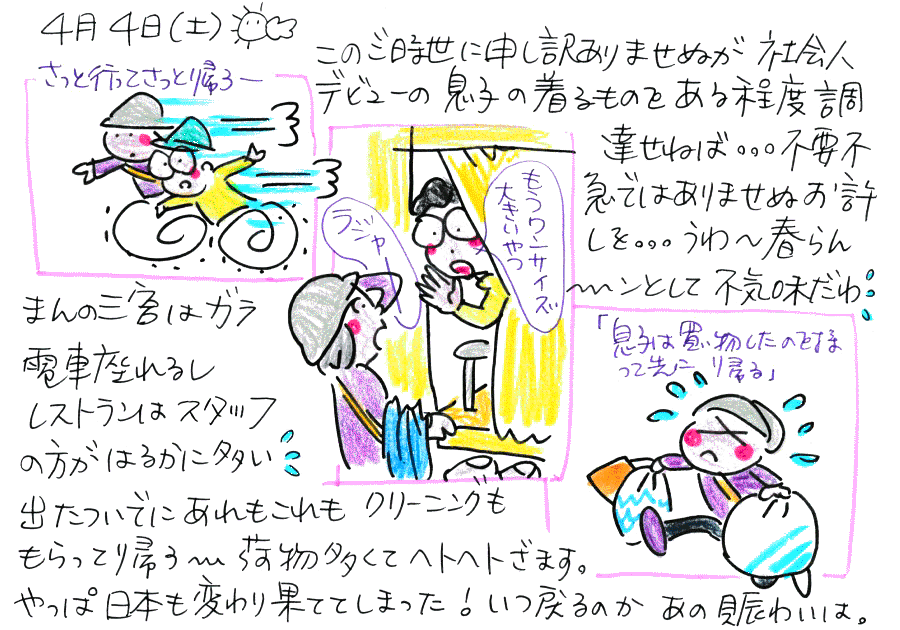 4月4日(土)
さっと行ってさっとり帰ろー
この三時世に申し訳ありませぬが 社会人
デビューの 息子の着るものを ある程度調
達せねば。。。不要不
急ではありませぬお許
しを。。。うわ〜春らん
〜ンとして 不気味だわ
もうワンサイズ
大きいやつ
ラジャー
まんの三宮はガラ
電車座れるし
レストランはスタッフ
の方がはるかに多い
「息子は買い物したのと様
って先に り帰る」
出たついでにあれもこれも クリーニングも
もらってり帰ろ〜 荷物多くてヘトヘトざます。
やっぱ日本も変わり果ててしまった!いつ戻るのか あの賑わいは。